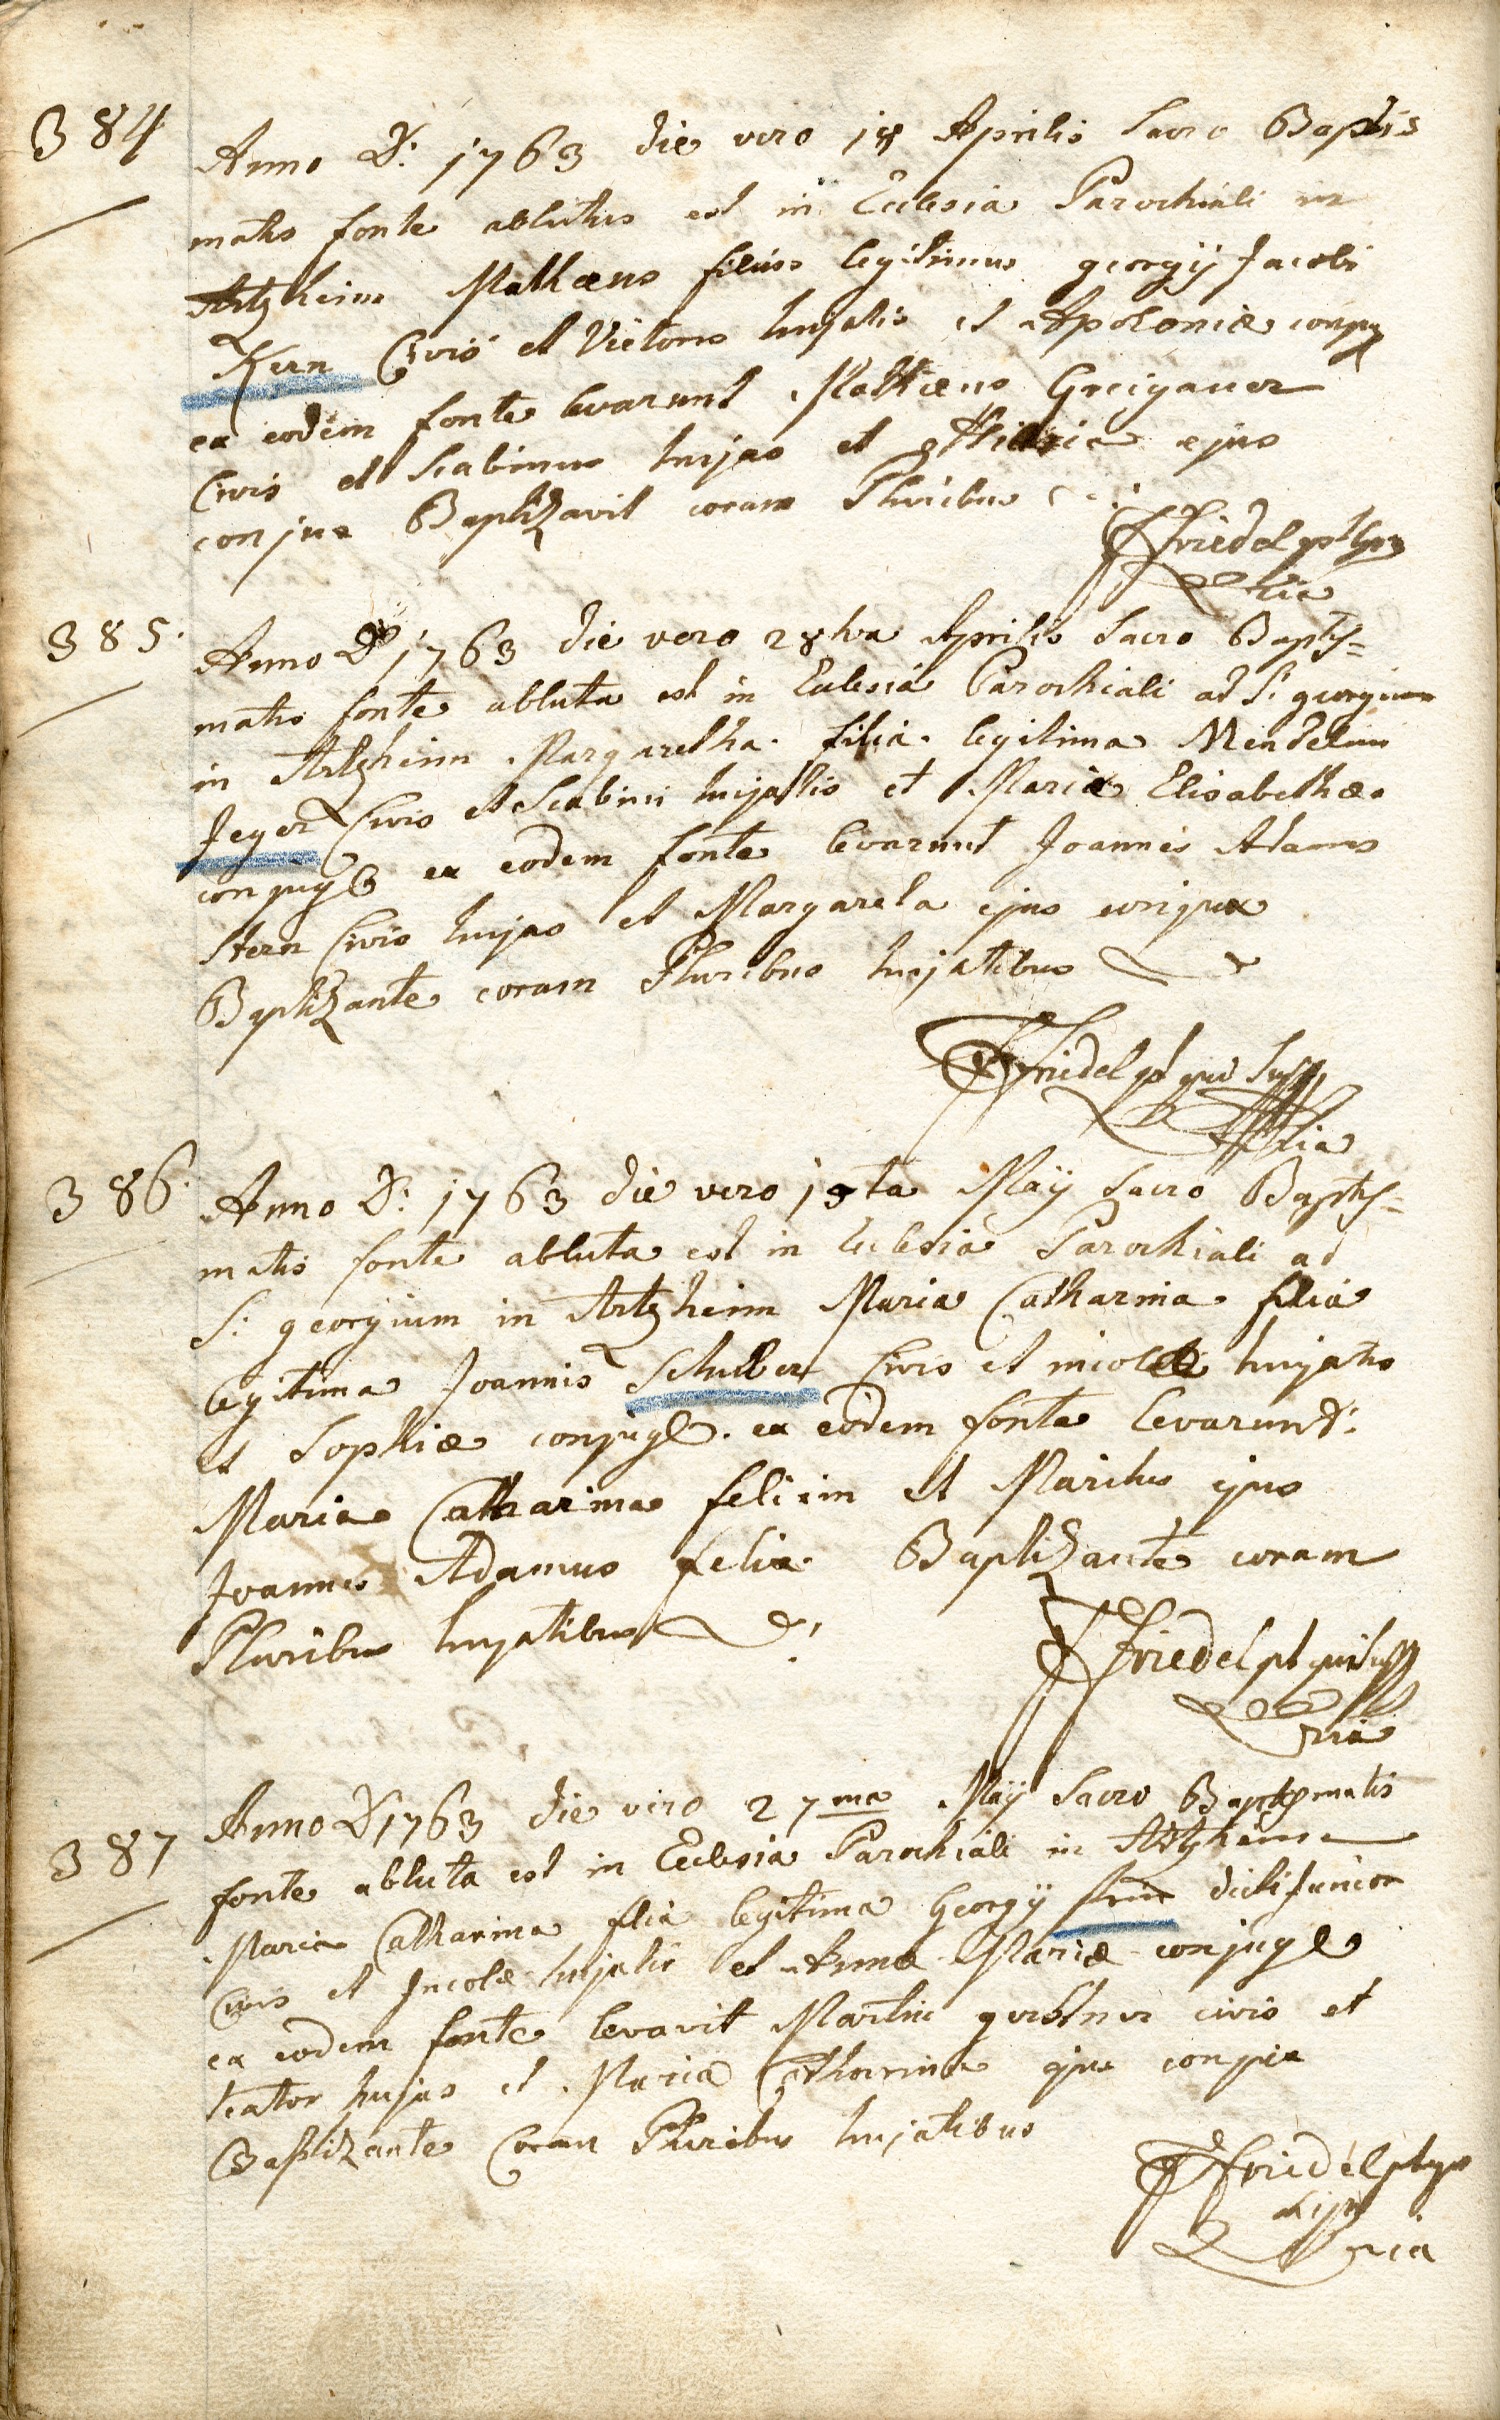 384
Anno D: 1763 die vero 18 Aprilis Sacro Baptis
matis fonte ablutus est in Ecclesia Parochiali in
Artzheim Mathaeus filius legitimus georgÿ Jacobi
Kern Civis et Vietoris hujatis et Apoloniae conjug
ex eodem fonte levarunt Mathaeus
Civis et Scabinus hujas et ejus
conjux Baptizavit coram Pluribus
Friedel
385.
Anno D 1763 die vero 28tva Aprilis Sacro Baptis=
matis fonte abluta est in Eclesia Parochiali ad S: georgium
in Artzheim Margaretha filia legitima Wendelini
Jeger Civis et Scabini hujatis et Mariae Elisabethae
conjug ex eodem fonte levarunt Joannes Adamus
Stern Civis hujas et Margareta ejus conjux
Baptizante coram Pluribus hujatibus
Friedel
386.
Anno D: 1763 die vero Maÿ Sacro Baptis=
matis fonte abluta est in Eclesia Parochiali ad
S: georgium in Artzheim Maria Catharina filia
legitima Joannis Civis et incolae hujatis
et Sophiae conjug ex eodem fonte levarund:
Maria Catharina felixin et Maritus ejus
Joannes Adamus felix Baptizante coram
Pluribus hujatibus
Friedel
387
Anno D 1763 die vero 27ma Maÿ Sacro Baptismatis
fonte abluta est in Ecclesia Parochiali in Artzheim
Maria Catharina filia legitima Georgÿ dicti Junior
Civis et Incolae hujatis et Annae Mariae conjug
ex eodem fonte levavit Martin civis et
hujas et Maria Catharina ejus conjux
Baptizante Coram Pluribus hujatibus
Friedel